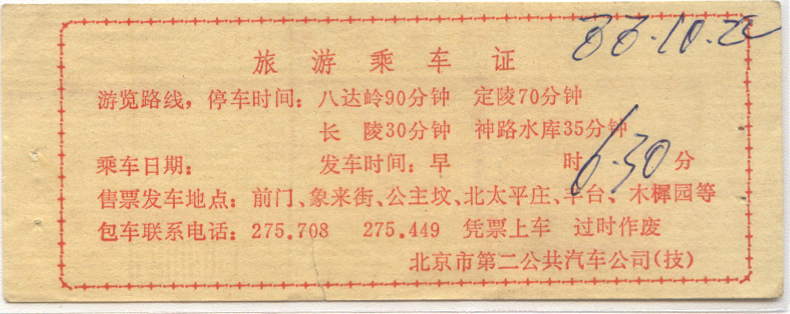 88.10.22
旅游乘车证
游览路线,停车时间:八达岭90分钟 定陵70分钟
长 陵30分钟 神路水库35分钟
乘车日期: 发车时间:早 时6.30分
售票发车地点:前门、象来街、公主坟、北太平庄、丰台、木樨园等
包车联系电话:275.708 275.449 凭票上车 过时作废
北京市第二公共汽车公司(技)